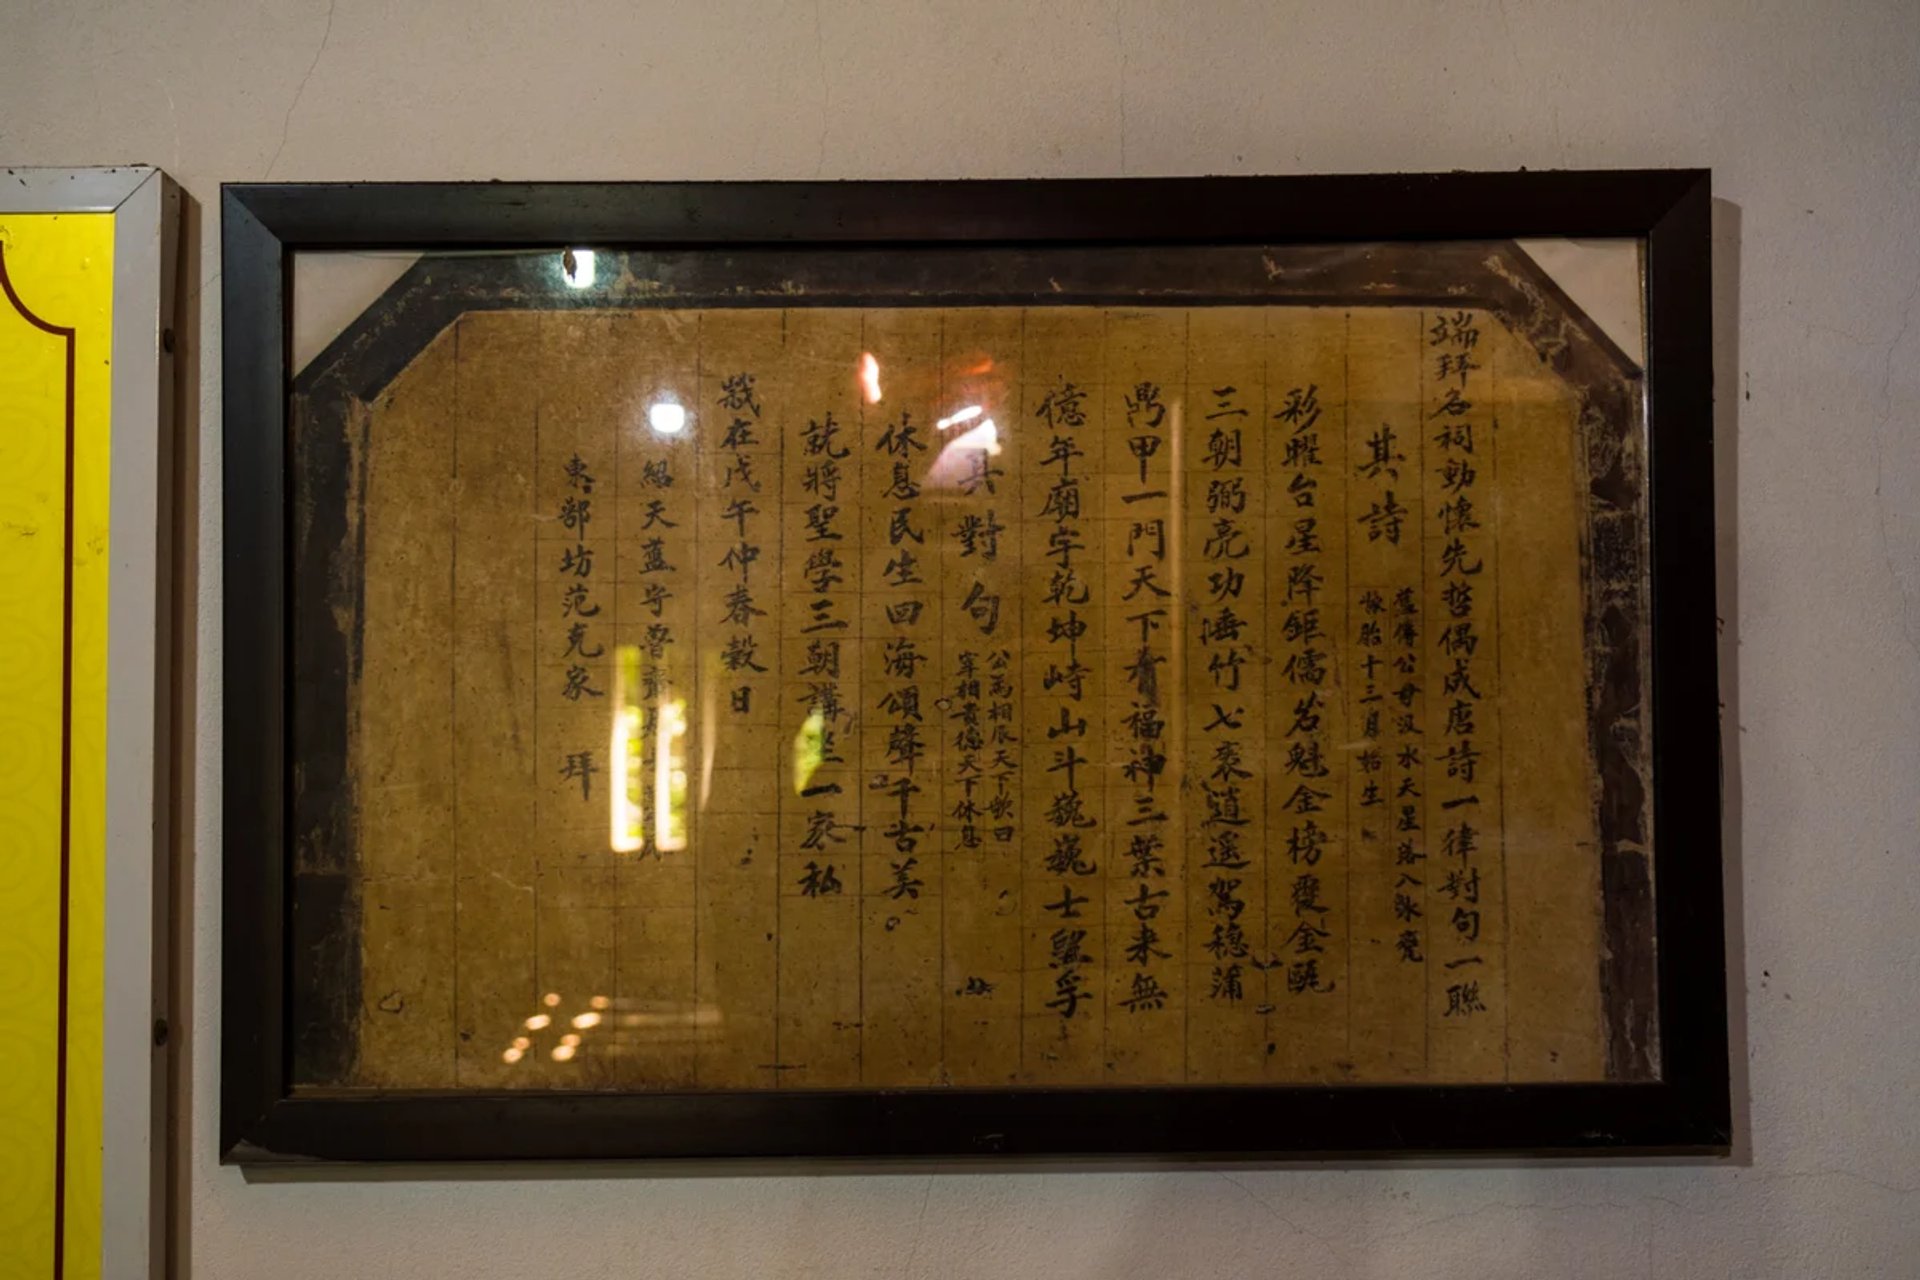 端拜名祠動懷先哲偶成唐詩一律對句一聯
其詩
舊傳公母汲水天星落入
懷胎十三月始生
彩曜台星降鉅儒名魁金榜覆金甌
三朝弼亮功垂竹七袠逍遥駕穩蒲
鼎甲一門天下有福神三葉古来無
億年廟宇乾坤峙山斗巍巍士望孚
其對句
公為相辰天下歌曰
宰相貴德天下休息
休息民生四海頌聲千古美
就將聖學三朝講 一家私
戊午仲春穀日
紹天藍守
東部坊范克家 拜